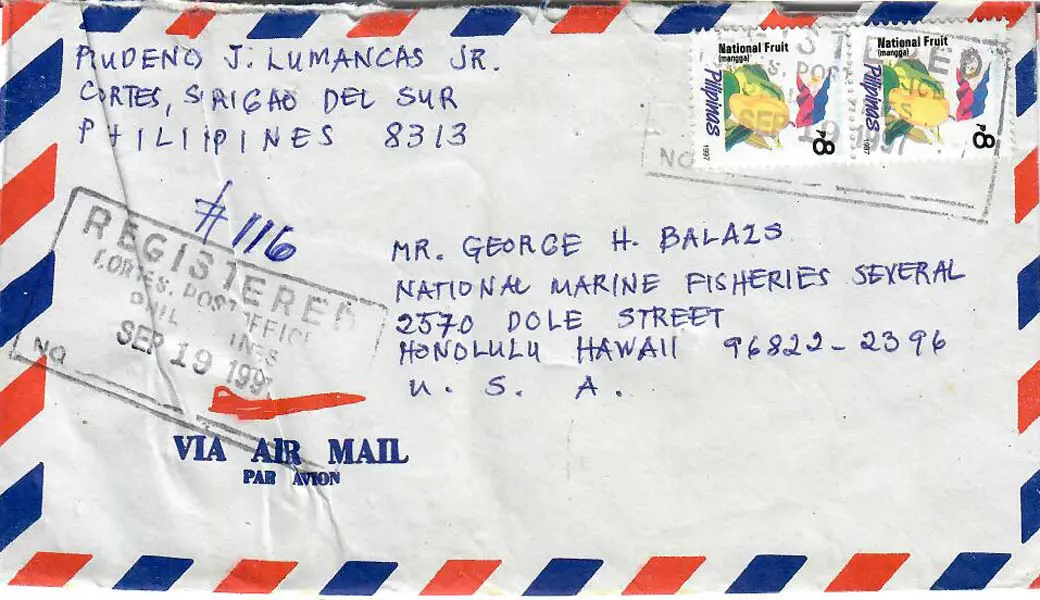 PRUDENO J. LUMANCAS JR.
CORTES, SURIGAO DEL SUR
PHILIPPINES 8313
National Fruit
(mangga)
Pilipinas
1997
P8
National Fruit
(mangga)
Pilipinas
1997
P8
SEP 19 1997
NO
# 116
REGISTERED
CORTES, POST OFFICE
PHILIPPINES
SEP 19 1997
NO
MR. GEORGE H. BALAZS
NATIONAL MARINE FISHERIES SEVERAL
2570 DOLE STREET
HONOLULU HAWAII 96822-2396
U. S. A.
VIA AIR MAIL
PAR AVION